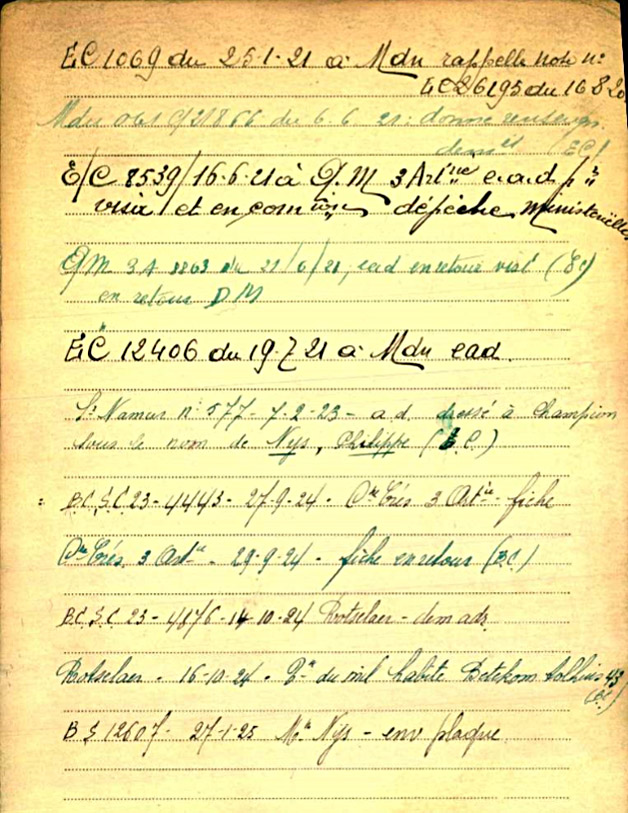 EC 1069 du 25·1·21 à Mdn rappelle note n°
EC 26195 du 16 8 20
Mdn 061 du 6.6.21: donne renseign.
(EC)
E/C 8539/16·6·21 à Q.M 3 Art^ie e.a.d
visa et en com^ion dépêche Ministérielle
QM 3A 1863 du 21/6/21, ead en retour visé (EC)
en retour DM
EC 12406 du 19.7 21 à Mdn ead.
S^t Namur n° 577 - 7-2-23 - a.d. dressé à Champion
sous le nom de Nys, Philippe (E.C.)
B.C.S.C 23-4443 - 27-9-24 - 3 Art^ie - fiche
3 Art^ie - 29-9-24 - fiche en retour (B.C.)
B.C.S.C 23-4876-14-10-24 Rotselaer - dem adr.
Rotselaer - 16-10-24 - du mil habite Betekom 43
(B.C.)
B S 12607 - 27-1-25 M^r Nys - env plaque